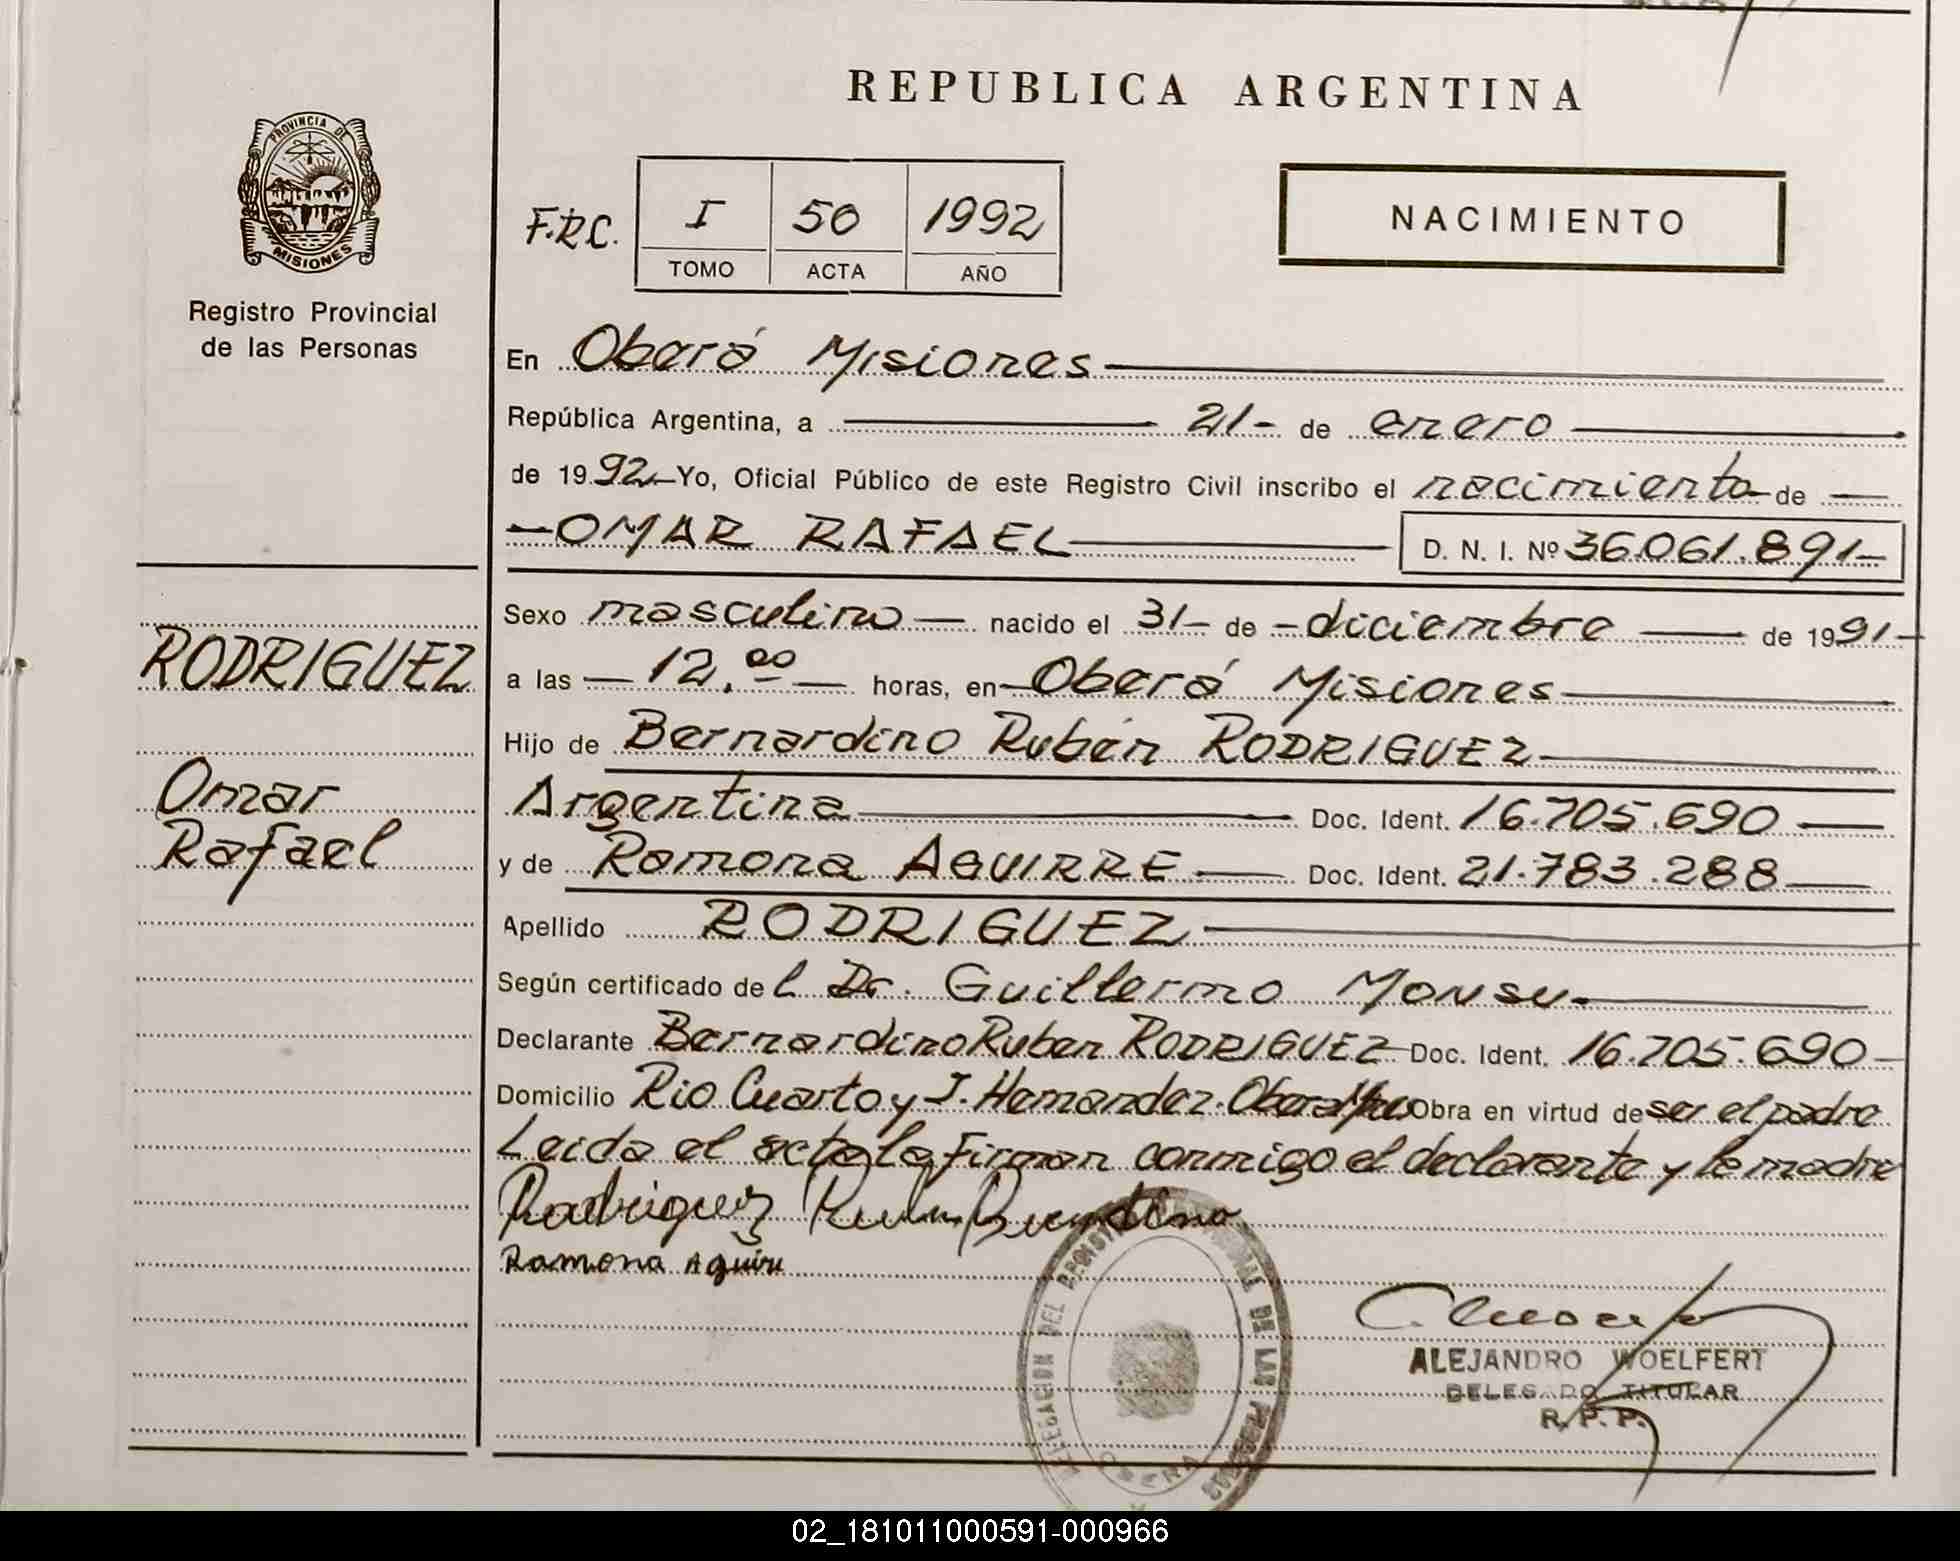 REPUBLICA ARGENTINA
PROVINCIA DE
MISIONES
Registro Provincial
de las Personas
F.R.C.
I 50 1992
TOMO ACTA AÑO
NACIMIENTO
En Oberá Misiones
República Argentina, a 21- de enero
de 1992 Yo, Oficial Público de este Registro Civil inscribo el nacimiento de
OMAR RAFAEL D. N. I. Nº 36.061.891-
RODRIGUEZ
Omar
Rafael
Sexo masculino nacido el 31- de diciembre de 1991-
a las 12.00 horas, en Oberá Misiones
Hijo de Bernardino Rubén RODRIGUEZ
Argentina Doc. Ident. 16.705.690
y de Ramona AGUIRRE Doc. Ident. 21.783.288
Apellido RODRIGUEZ
Según certificado del Dr. Guillermo Monsu
Declarante Bernardino Ruben RODRIGUEZ Doc. Ident. 16.705.690
Domicilio Rio Cuarto y J. Hernandez. Obera Obra en virtud de ser el padre
Leida el acta la firman conmigo el declarante y la madre
Rodriguez Ruben Bernardino
Ramona Aguirre
DELEGACION DEL REGISTRO PROVINCIAL DE LAS PERSONAS
OBERA
ALEJANDRO WOELFERT
DELEGADO TITULAR
R. P. P.
02_181011000591-000966